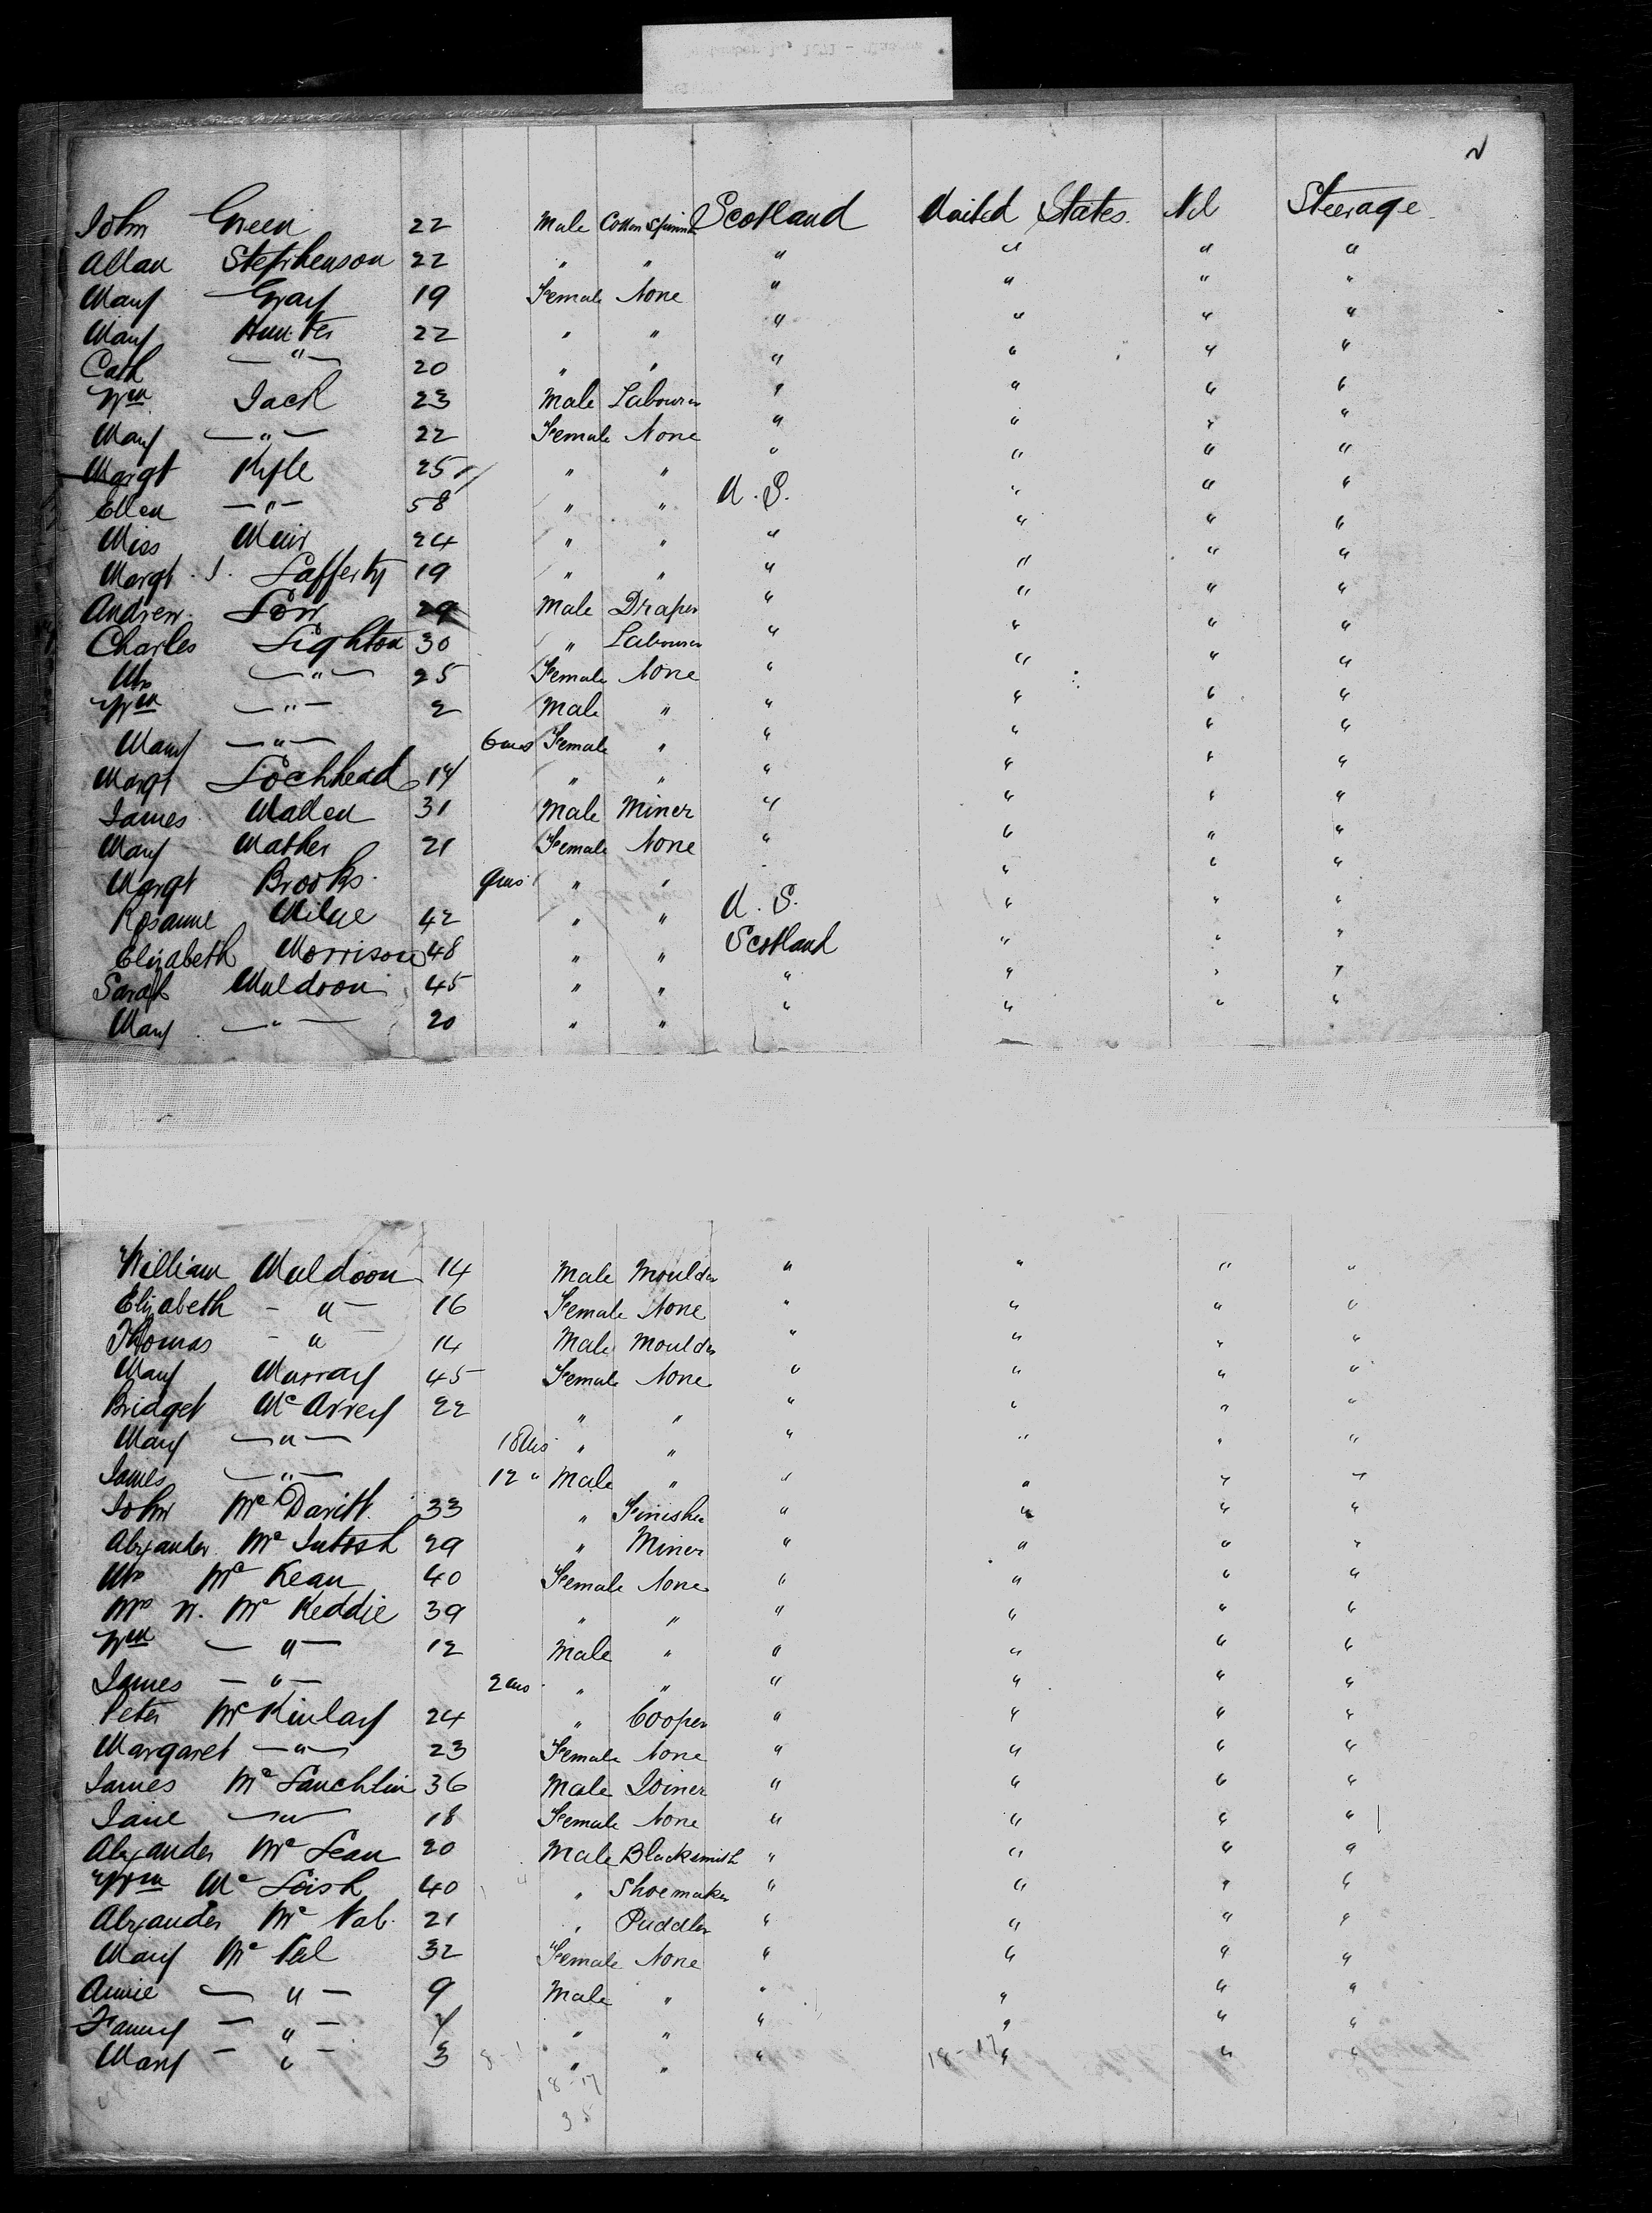 John Green 22 Male Cotton Spinner Scotland United States Nil Steerage
Allan Stephenson 22 " " " " " "
Mary Gray 19 Female None " " " "
Mary Hunter 22 " " " " " "
Cath — " — 20 " " " " " "
Wm Jack 23 Male Labourer " " " "
Mary — " — 22 Female None " " " "
Margt Kyle 25 " " " " " "
Ellen — " — 58 " " U. S. " " "
Miss Muir 24 " " " " " "
Margt J. Lafferty 19 " " " " " "
Andrew Low 29 Male Draper " " " "
Charles Lighton 30 " Labourer " " " "
Mrs — " — 25 Female None " " " "
Wm — " — 2 Male " " " " "
Mary — " — 6 ms Female " " " " "
Margt Lochhead 14 " " " " " "
James Mallen 31 Male Miner " " " "
Mary Mather 21 Female None " " " "
Margt Brooks 9 ms " " " " " "
Rosanne Milne 42 " " U. S. " " "
Elizabeth Morrison 48 " " Scotland " " "
Sarah Muldoon 45 " " " " " "
Mary — " — 20 " " " " " "
William Muldoon 14 Male Moulder " " " "
Elizabeth — " — 16 Female None " " " "
Thomas — " — 14 Male Moulder " " " "
Mary Murray 45 Female None " " " "
Bridget McArrey 22 " " " " " "
Mary — " — 18 Ms " " " " " "
James — " — 12 " Male " " " " "
John McDavitt 33 " Finisher " " " "
Alexander McIntosh 29 " Miner " " " "
Mrs McKean 40 Female None " " " "
Mrs W. McKeddie 39 " " " " " "
Wm — " — 12 Male " " " " "
James — " — 2 ms " " " " " "
Peter McKinlay 24 " Cooper " " " "
Margaret — " — 23 Female None " " " "
James McLauchlin 36 Male Joiner " " " "
Jane — " — 18 Female None " " " "
Alexander McLean 20 Male Blacksmith " " " "
Wm McLeish 40 " Shoemaker " " " "
Alexander McNab 21 " Puddler " " " "
Mary McNeil 32 Female None " " " "
Annie — " — 9 Male " " " " "
Fanny — " — " " " " " "
Mary — " — 3 " " " " " "
18-17
18-17
35